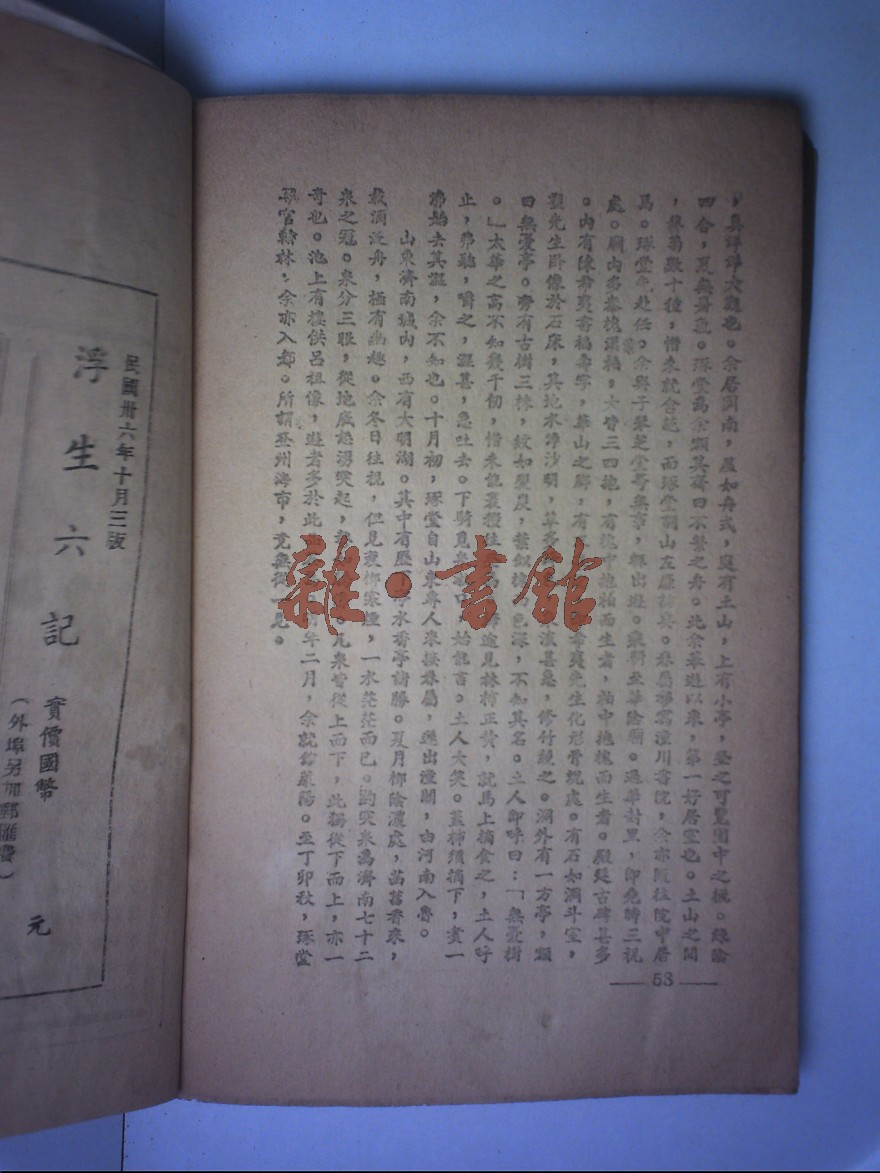 ，真洋洋大觀也。余居園南，屋如舟式，庭有土山，上有小亭，登之可覽園中之概。綠陰
四合，夏無暑氣。琢堂為余顏其齋曰不繫之舟。此余幕遊以來，第一好居室也。土山之間
，藝菊數十種，惜未就含葩，而琢堂調山左廉訪矣。眷屬移寓潼川書院，余亦隨往院中居
焉。琢堂先赴任。余與子琴芝堂等無事，輒出遊。乘騎至華陰廟。過華封里，即堯時三祝
處。廟內多秦槐漢柏，大皆三四抱，有槐中抱柏而生者，柏中抱槐而生者。殿廷古碑甚多
。內有陳希夷書福壽字，華山之腳，有希夷先生化形骨蛻處。有石如洞斗室，
塑先生臥像於石床，其地水淨沙明，草多流甚急，修竹繞之。洞外有一方亭，額
曰無憂亭。旁有古樹三株，紋如裂炭，葉似槐而色深，不知其名。土人即呼曰：「無憂樹
。」太華之高不知幾千仞，惜未能裹糧往途見林柿正黃，就馬上摘食之，土人呼
止，弗聽，嚼之，澀甚，急吐去。下騎覓口，始能言。土人大笑。蓋柿須摘下，煮一
沸始去其澀，余不知也。十月初，琢堂自山東專人來接眷屬，遂出潼關，由河南入魯。
山東濟南城內，西有大明湖。其中有歷水香亭諸勝。夏月柳陰濃處，菡萏香來，
載酒泛舟，極有幽趣。余冬日往視，但見衰柳寒煙，一水茫茫而已。趵突泉為濟南七十二
泉之冠。泉分三眼，從地底怒湧突起，凡泉皆從上而下，此獨從下而上，亦一
奇也。池上有樓供呂祖像，遊者多於此年二月，余就館萊陽。至丁卯秋，琢堂
官翰林，余亦入都。所謂登州海市，竟無從一見。
— 53 —
雜·書館
民國卅六年十月三版
浮生六記
實價國幣　元
（外埠另加郵匯費）